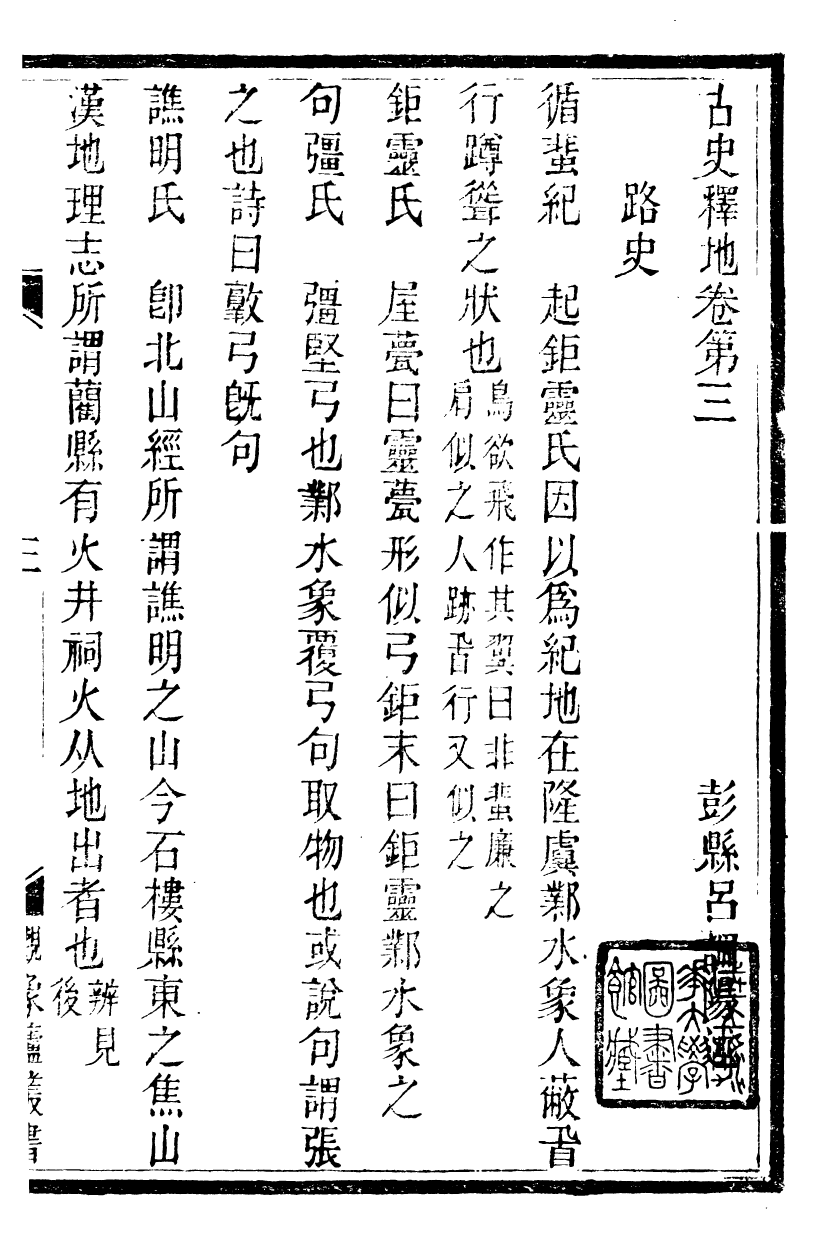 古史釋地卷第三
彭縣呂調陽
路史
循蜚紀　起鉅靈氏因以爲紀地在隆虞鄴水象人蔽𦣻
行蹲聳之狀也鳥欲飛作其翼曰非蜚廉之
肩似之人跡𦣻行又似之
鉅靈氏　屋甍曰靈甍形似弓鉅末曰鉅靈鄴水象之
句彊氏　彊堅弓也鄴水象覆弓句取物也或說句謂張
之也詩曰敿弓旣句
譙明氏　卽北山經所謂譙明之山今石樓縣東之焦山
漢地理志所謂藺縣有火井祠火从地出者也辨見
後
三
觀象廬叢書
大學
圖書
館藏